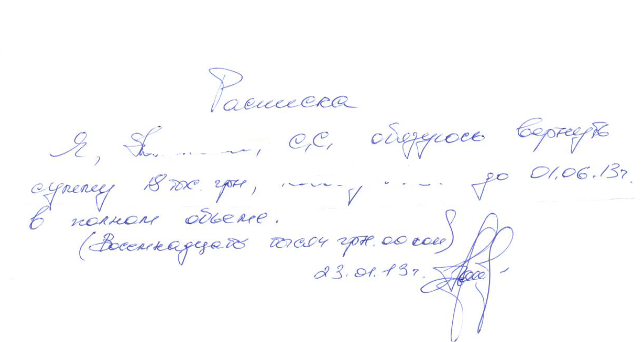 Расписка
Я, С,С, обязуюсь вернуть
сумму 18 тыс. грн, до 01.06.13г.
в полном объеме.
(Восемнадцать тысяч грн. 00 коп)
23.01.13г.